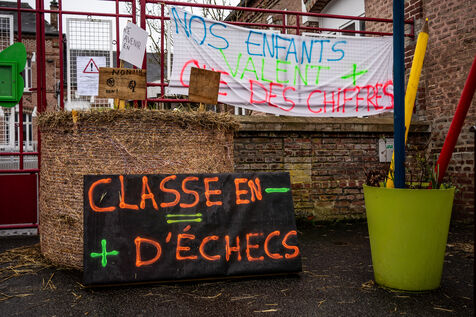 NOS ENFANTS
VALENT +
QUE DES CHIFFRES
AVENIR
NON
CLASSE EN -
=
+ D'ÉCHECS